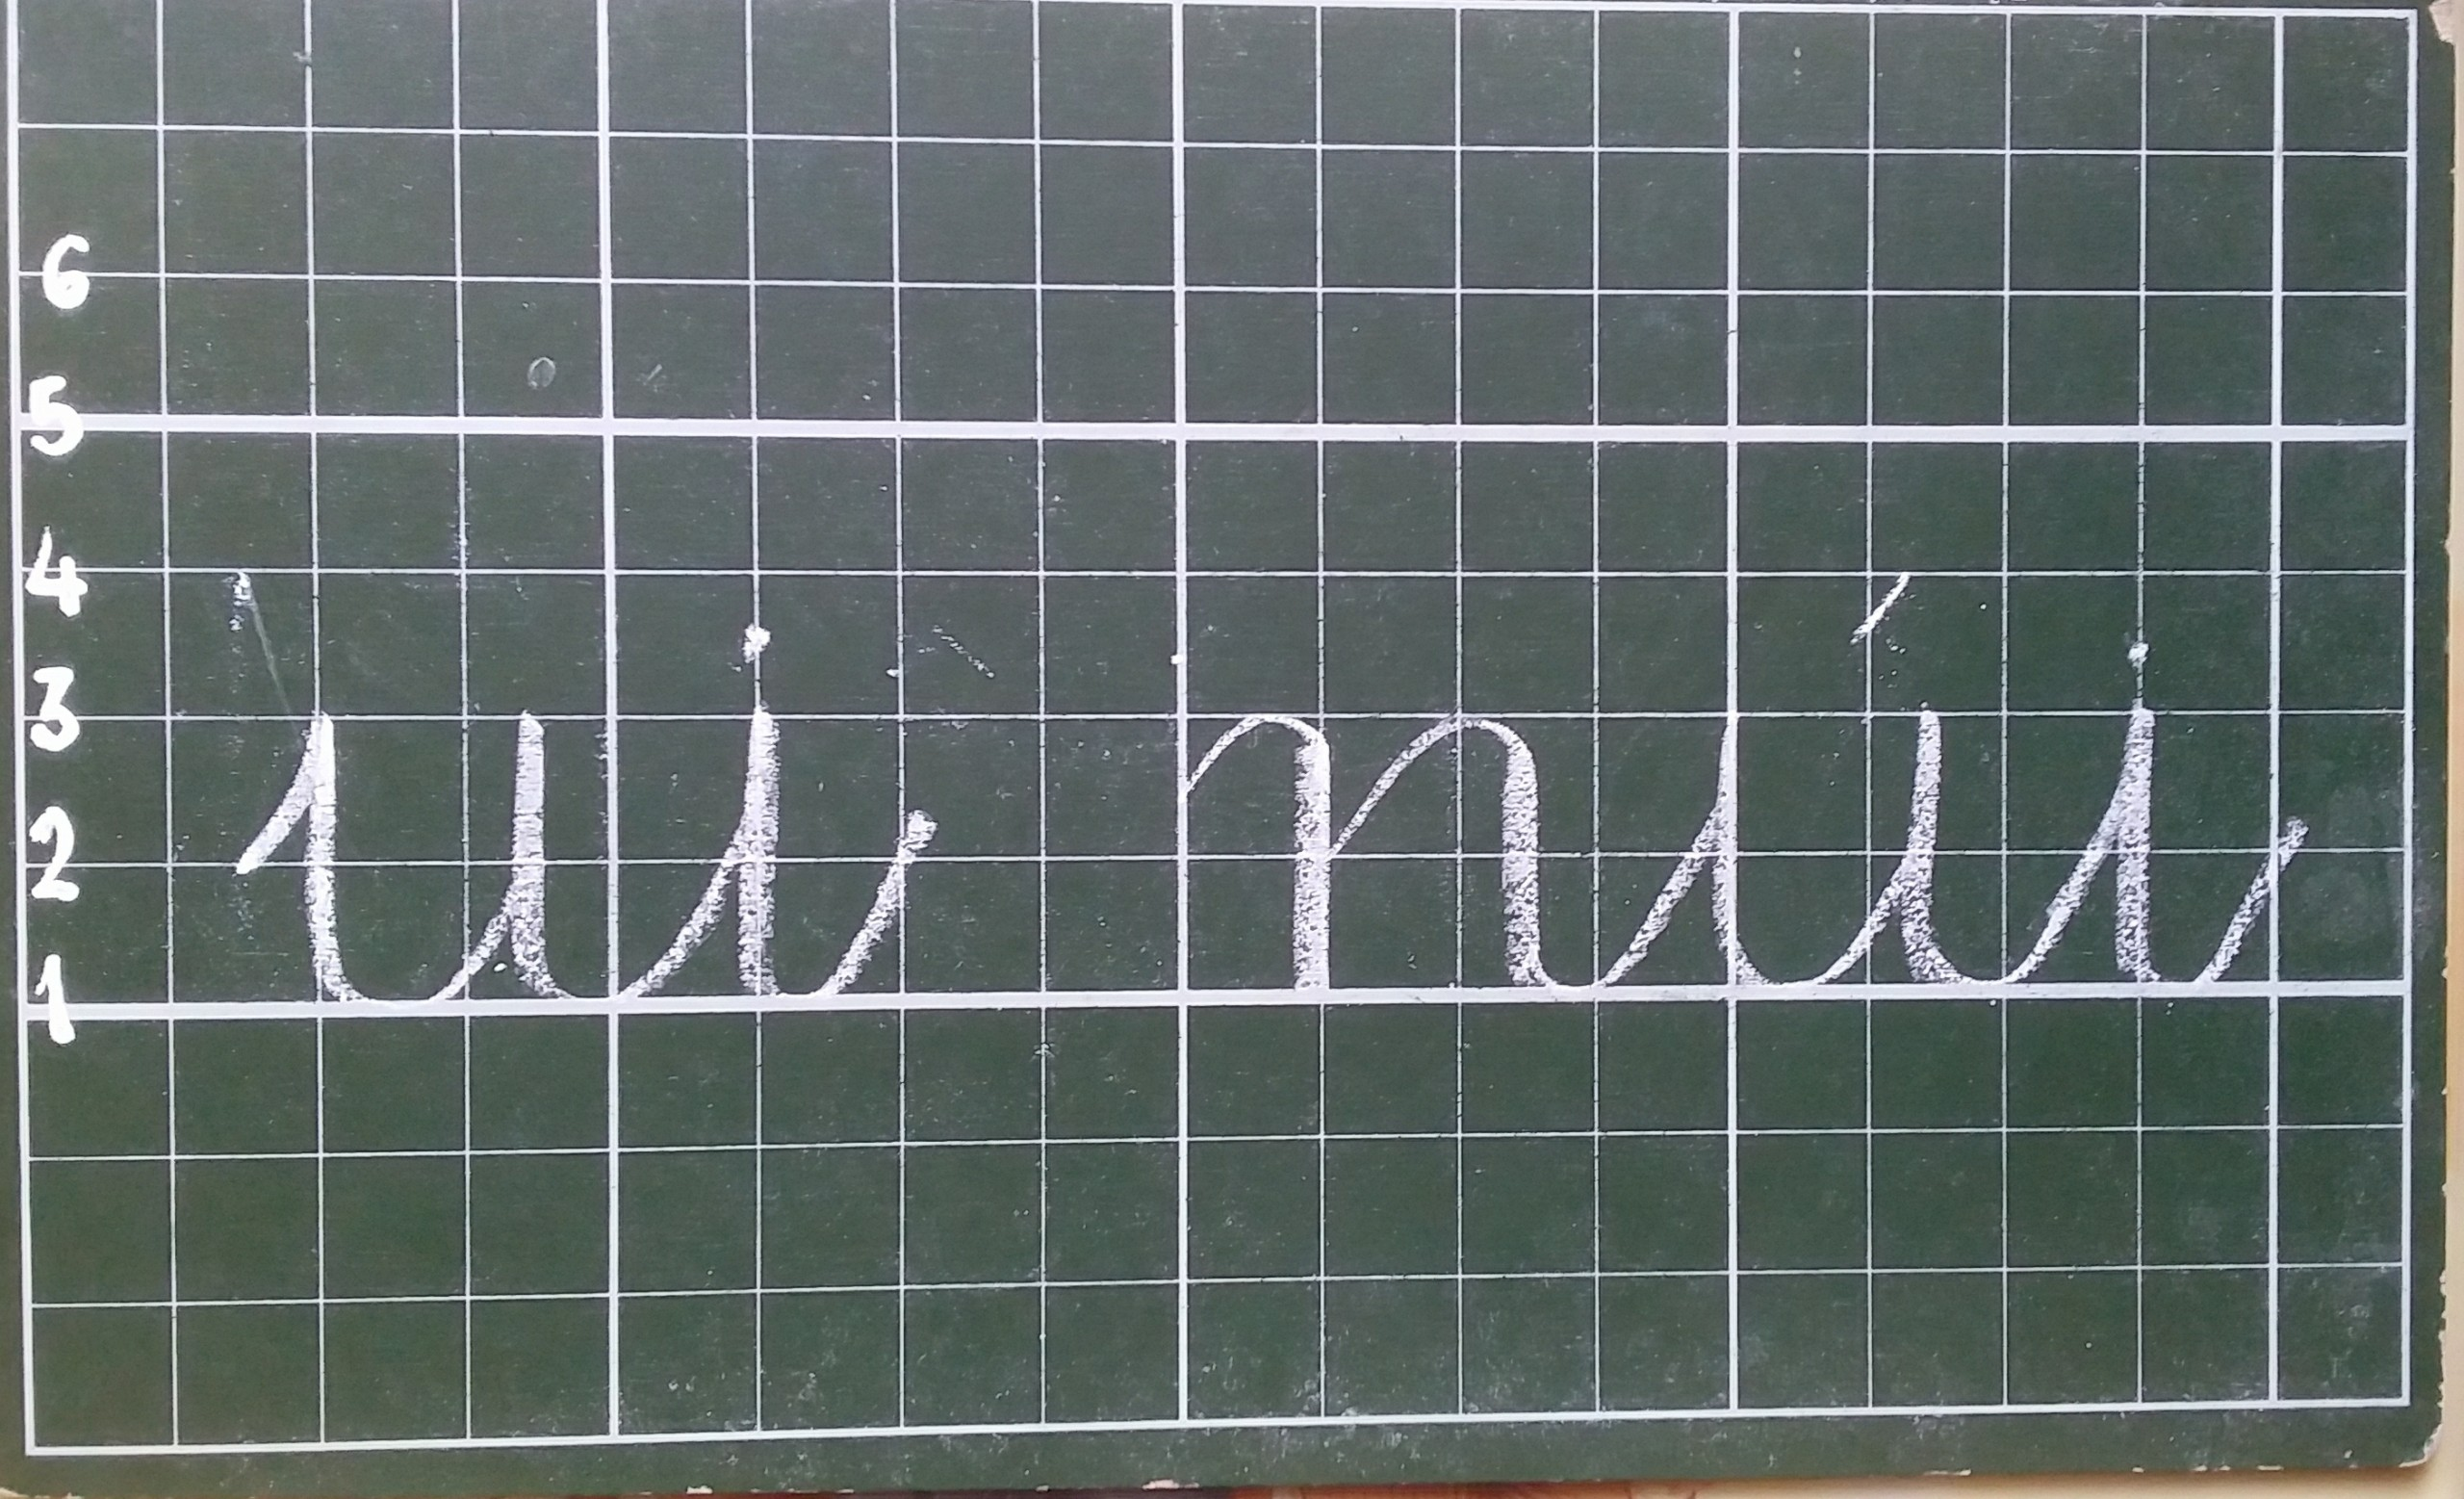 6
5
4
3
2 ui núi
1